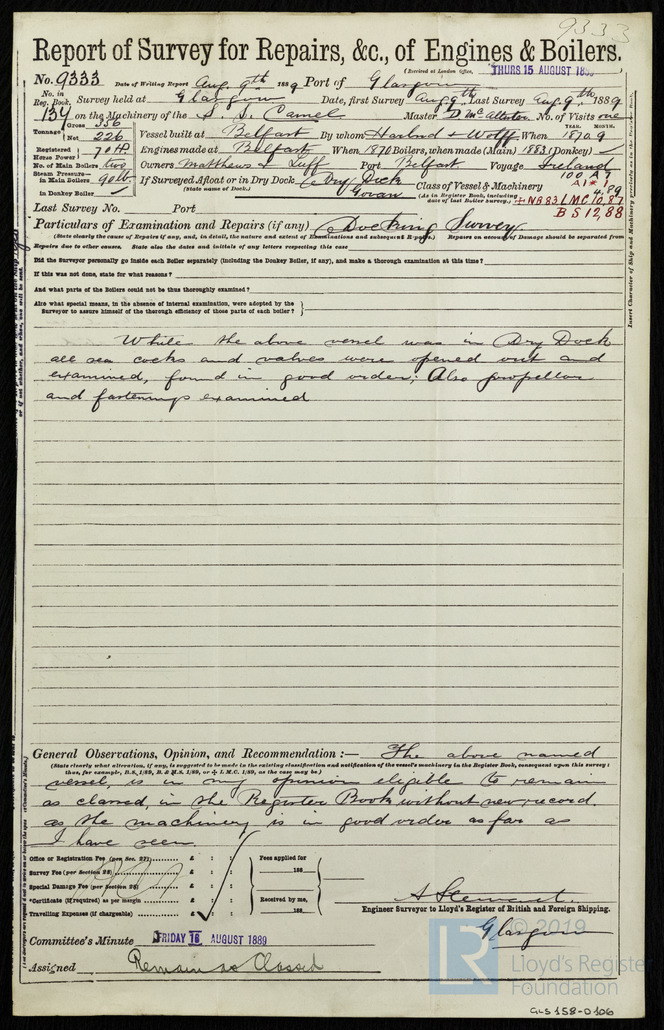 9333
Report of Survey for Repairs, &c., of Engines & Boilers.
(Received at London Office, THURS 15 AUGUST 1889
No. 9333 Date of Writing Report Aug. 9th 1889 Port of Glasgow
No. in Reg. Book. Survey held at Glasgow Date, first Survey Aug 9th Last Survey Aug. 9th 1889
134 on the Machinery of the S. S. Camel Master D. McAllister No. of Visits one
Tonnage Gross 356 Net 226 Vessel built at Belfast By whom Harland & Wolff When YEAR. 1870 MONTH. 9
Registered Horse Power 70 HP Engines made at Belfast When 1870 Boilers, when made (Main) 1883 (Donkey) ✓
No. of Main Boilers two Owners Matthews & Luff Port Belfast Voyage Ireland
Steam Pressure— in Main Boilers 90 lb If Surveyed Afloat or in Dry Dock Dry Dock Govan
(State name of Dock.)
in Donkey Boiler ✓ Class of Vessel & Machinery 100 A 1
(As in Register Book, including date of last Boiler Survey.) 4,89
+ NB 83 LMC 10,87
B S 12,88
Last Survey No. Port
Particulars of Examination and Repairs (if any) Docking Survey
(State clearly the cause of Repairs if any, and, in detail, the nature and extent of Examinations and subsequent Repairs.) Repairs on account of Damage should be separated from
Repairs due to other causes. State also the dates and initials of any letters respecting this case
Did the Surveyor personally go inside each Boiler separately (including the Donkey Boiler, if any), and make a thorough examination at this time?
If this was not done, state for what reasons?
And what parts of the Boilers could not be thus thoroughly examined?
Also what special means, in the absence of internal examination, were adopted by the
Surveyor to assure himself of the thorough efficiency of those parts of each boiler?
While the above vessel was in Dry Dock
all sea cocks and valves were opened out and
examined, found in good order; Also propellor
and fastenings examined
General Observations, Opinion, and Recommendation :— The above named
(State clearly what alteration, if any, is suggested to be made in the existing classification and notification of the vessel's machinery in the Register Book, consequent upon this survey:
thus, for example, B.S. 1/89, B. & M.S. 1/89, or + L.M.C. 1/89, as the case may be.)
vessel, is in my opinion eligible to remain
as classed, in the Register Book without new record.
as the machinery is in good order as far as
I have seen
Office or Registration Fee (per Sec. 27) £ : :
Survey Fee (per Section 28) £ : :
Special Damage Fee (per Section 28) £ : :
*Certificate (if required) as per margin £ : :
Travelling Expenses (if chargeable) £ : :
Fees applied for
188
Received by me,
188
A Stewart.
Engineer Surveyor to Lloyd's Register of British and Foreign Shipping.
Glasgow
Committee's Minute FRIDAY 16 AUGUST 1889
Assigned Remain as Classed
LR
© 2019
Lloyd's Register
Foundation
GLS 158-0106
Insert Character of Ship and Machinery precisely as in the Register Book.